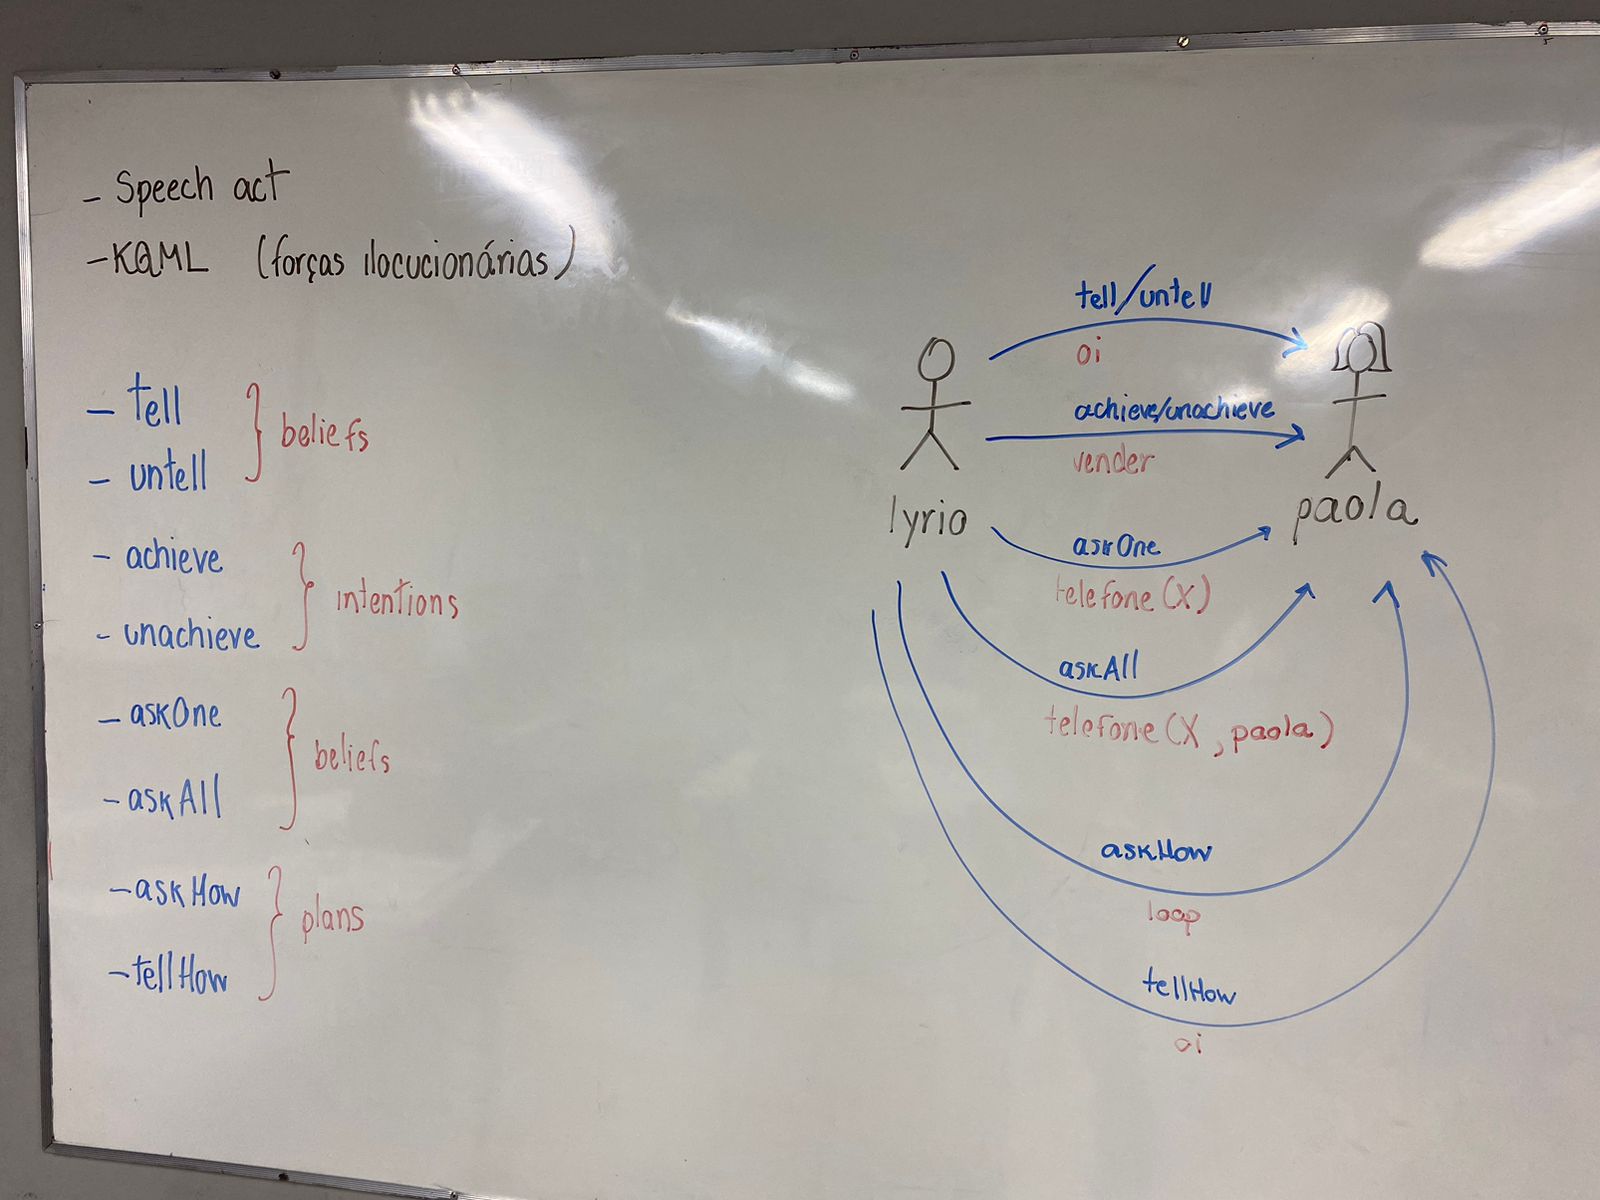 - Speech act
- KQML (forças ilocucionárias)
- tell
- untell
beliefs
- achieve
- unachieve
intentions
- askOne
- askAll
beliefs
- askHow
- tellHow
plans
tell/untell
oi
achieve/unachieve
vender
lyrio
paola
askOne
telefone(X)
askAll
telefone(X, paola)
askHow
loop
tellHow
oi